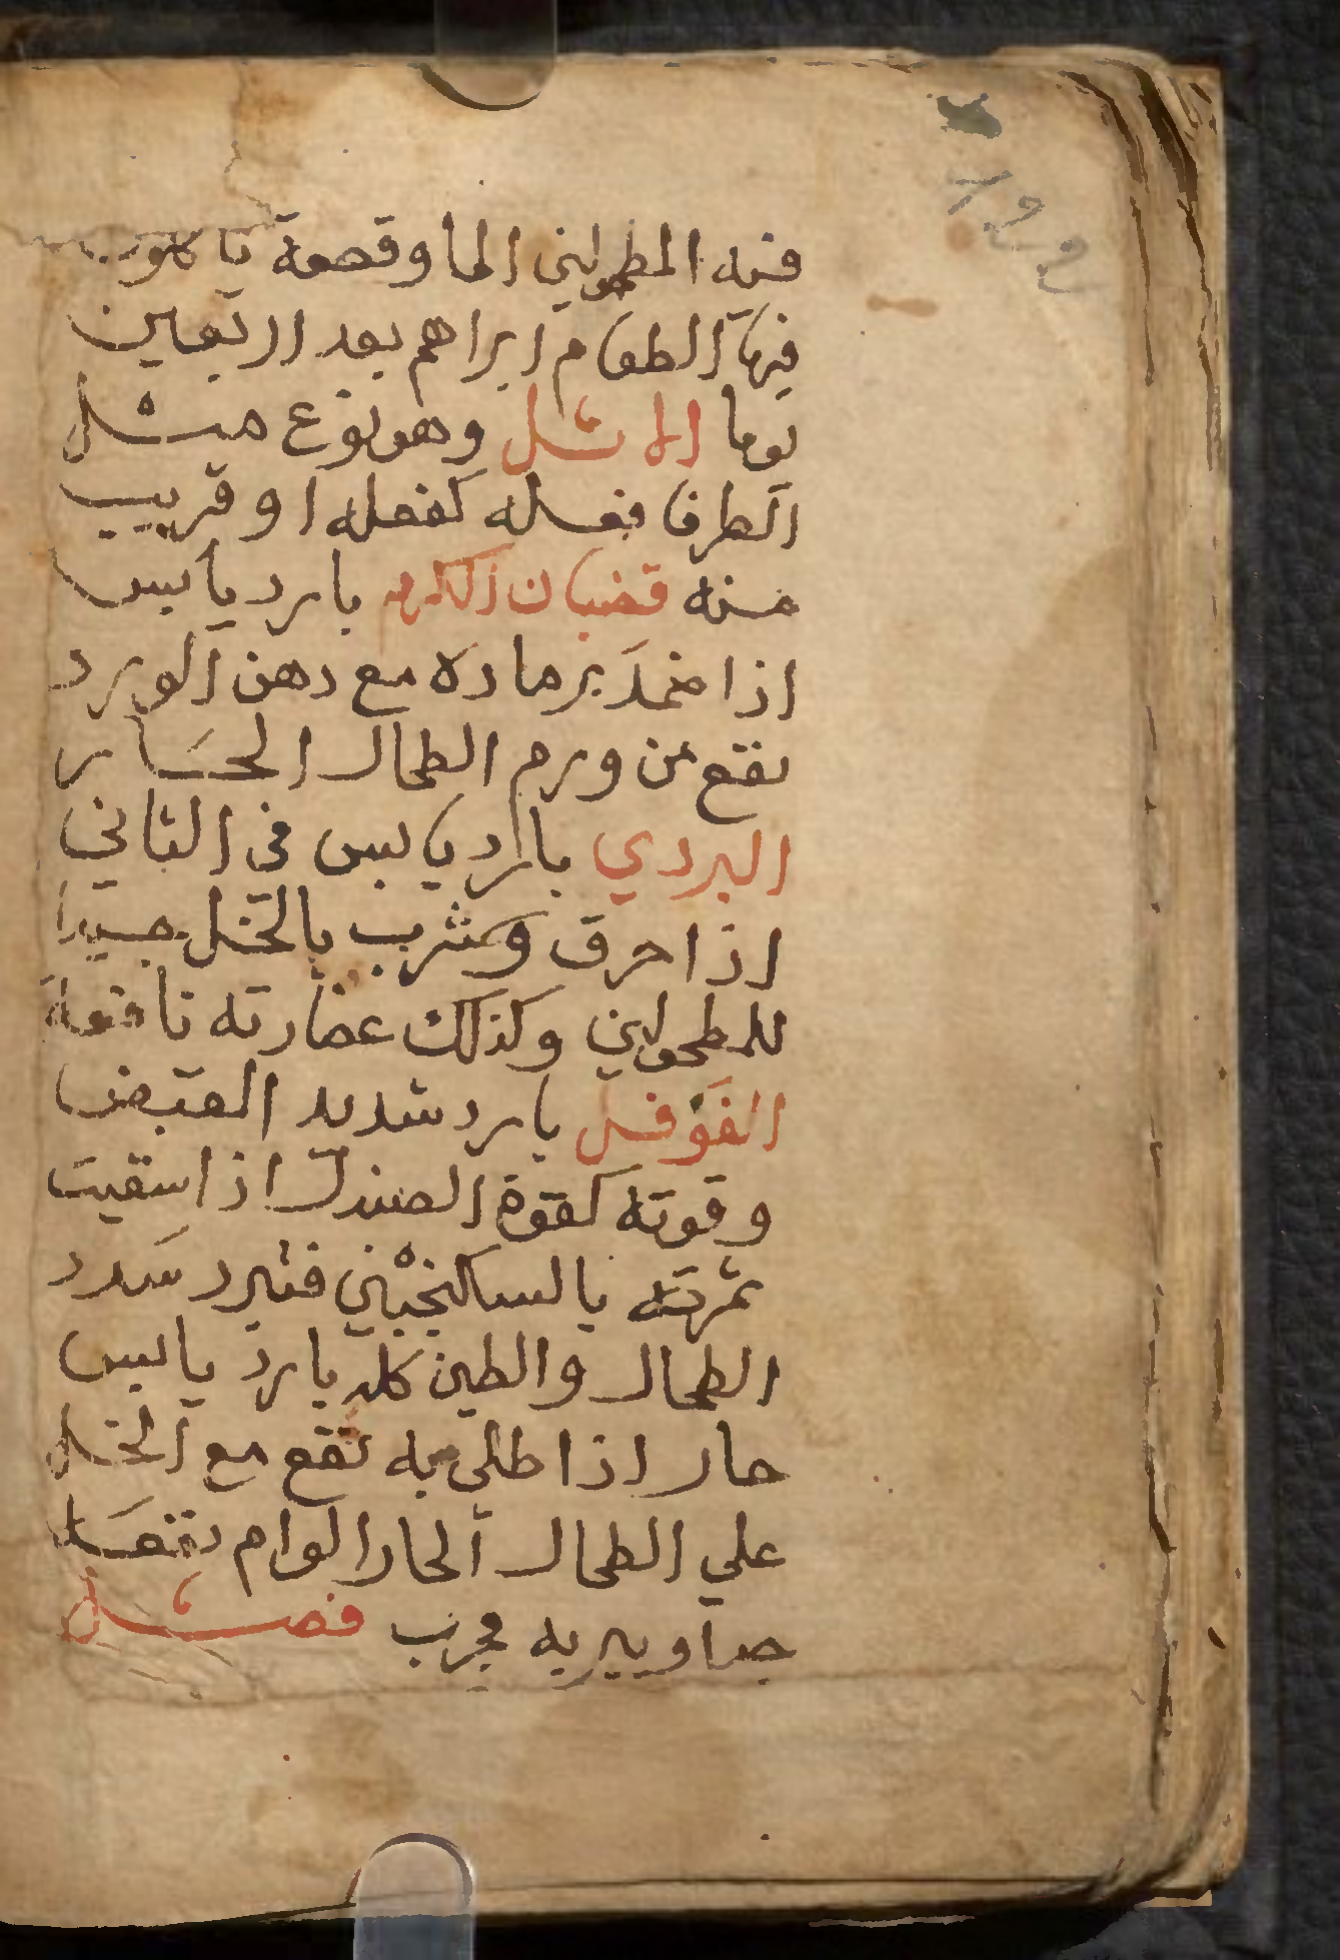 فيه المطحولين الما وقصعة ياكلون
فيها الطعام ابراهم بعد اربعين
يوما الاثل وهو نوع من
الطرفا ففعله كفعله او قريب
منه قضبان الكرم بارد يابس
اذا ضمد برماده مع دهن الورد
نفع من ورم الطحال الحار
البردي بارد يابس في الثاني
اذا احرق وشرب بالخل جيدا
للمطحولين وكذلك عصارته نافعة
الفوفل بارد شديد القبض
وقوته كقوة الصندل اذا سقيت
ثمرته بالسكنجبين فتبرد سدد
الطحال والطين كله بارد يابس
حار اذا طلي به نفع مع الخل
علي الطحال الحار الوارم نفعا
جدا ويبريه مجرب فصل